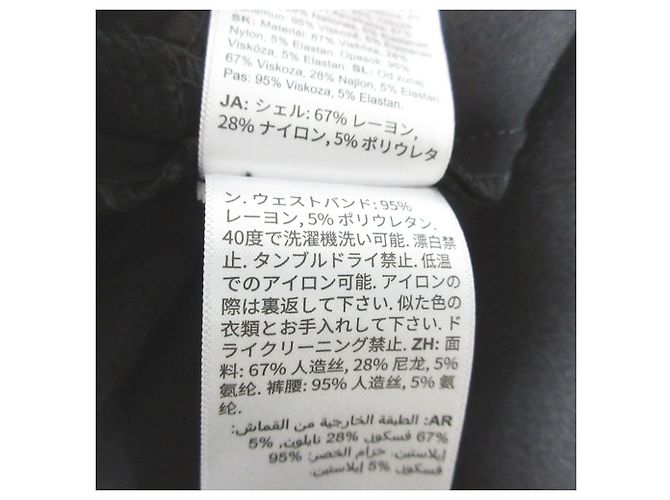 SK: Materiál: 67% Viskóza, 28%
Nylon, 5% Elastan. Opasok: 95%
Viskóza, 5% Elastan. SL: Od zunaj
67% Viskoza, 28% Najlon, 5% Elastan
Pas: 95% Viskoza, 5% Elastan.
JA: シェル: 67% レーヨン,
28% ナイロン, 5% ポリウレタ
ン. ウェストバンド: 95%
レーヨン, 5% ポリウレタン.
40度で洗濯機洗い可能. 漂白禁
止. タンブルドライ禁止. 低温
でのアイロン可能. アイロンの
際は裏返して下さい. 似た色の
衣類とお手入れして下さい. ド
ライクリーニング禁止. ZH: 面
料: 67% 人造丝, 28% 尼龙, 5%
氨纶. 裤腰: 95% 人造丝, 5% 氨
纶.
AR: الطبقة الخارجية من القماش:
67% فسكوز, 28% نايلون, 5%
إيلاستين. حزام الخصر: 95%
فسكوز, 5% إيلاستين.